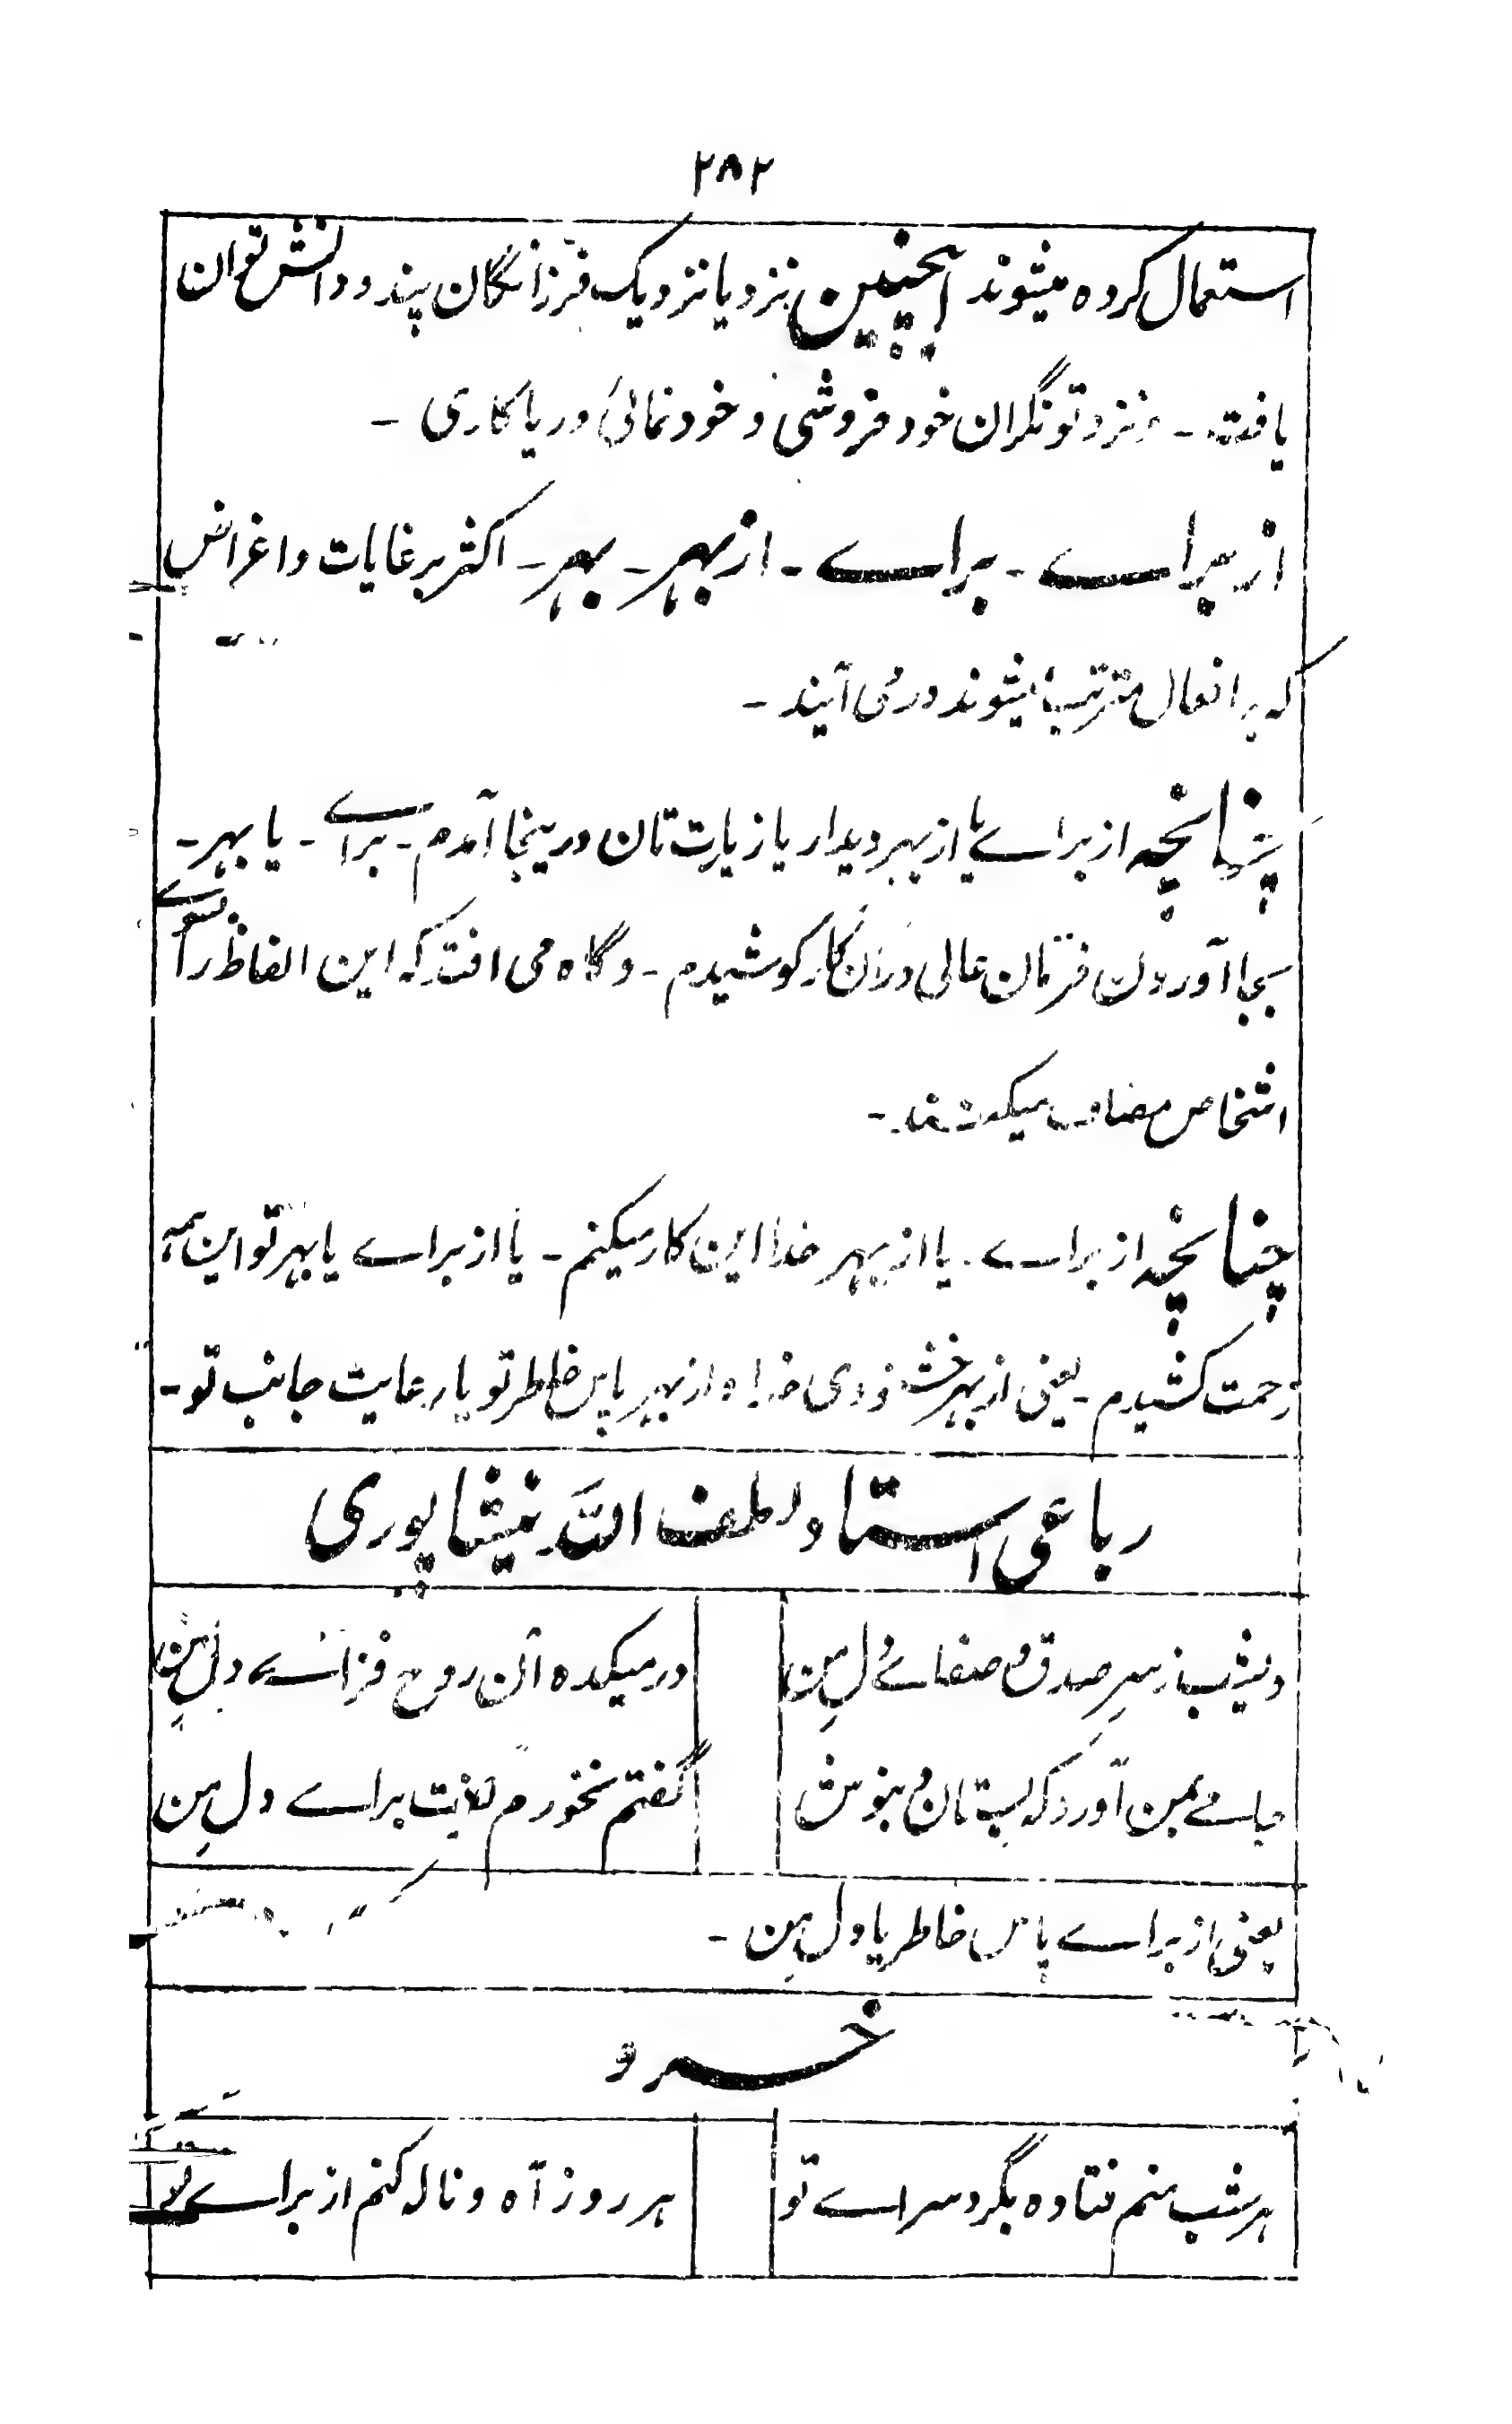 ۲۸۲
استعمال کرده میشوند اینچنین نزد یا نزدیک فرزانگان پند و دانش توان
یافت ـ و نزد تونگران خود فروشی و خود نمائی و ریا کاری ـ
از براے ـ براے ـ از بهر ـ بهر ـ اکثر بر غایات و اغراض
که بر افعال مترتب میشوند در می آیند ـ
چنانچه از براے یا از بهر دیدار یا زیارت تان درینجا آمدم ـ براے ـ یا بهر ـ
بجا آوردن فرمان عالی دران کار کوشیدم ـ و گاه می افتد که این الفاظ را بسوے
اشخاص مضاف میکنند ـ
چنانچه از براے ـ یا از بهر خدا این کار میکنم ـ یا از براے یا بهر تو این همه
زحمت کشیدم ـ یعنی از بهر خشنودی خدا و از بهر پاس خاطر تو یا رعایت جانب تو ـ
رباعی استاد لطف الله نیشاپوری
دیشب ز سرِ صدق و صفائے دلِ من
در میکده آن روح فزائے دلِ من
جامے بمن آورد که بستان و بنوش
گفتم نخورم گفت براے دلِ من
یعنی از براے پاس خاطر یا دلِ من ـ
خسرو
هر شب منم فتاده بگرد سراے تو
هر روز آه و ناله کنم از براے تو